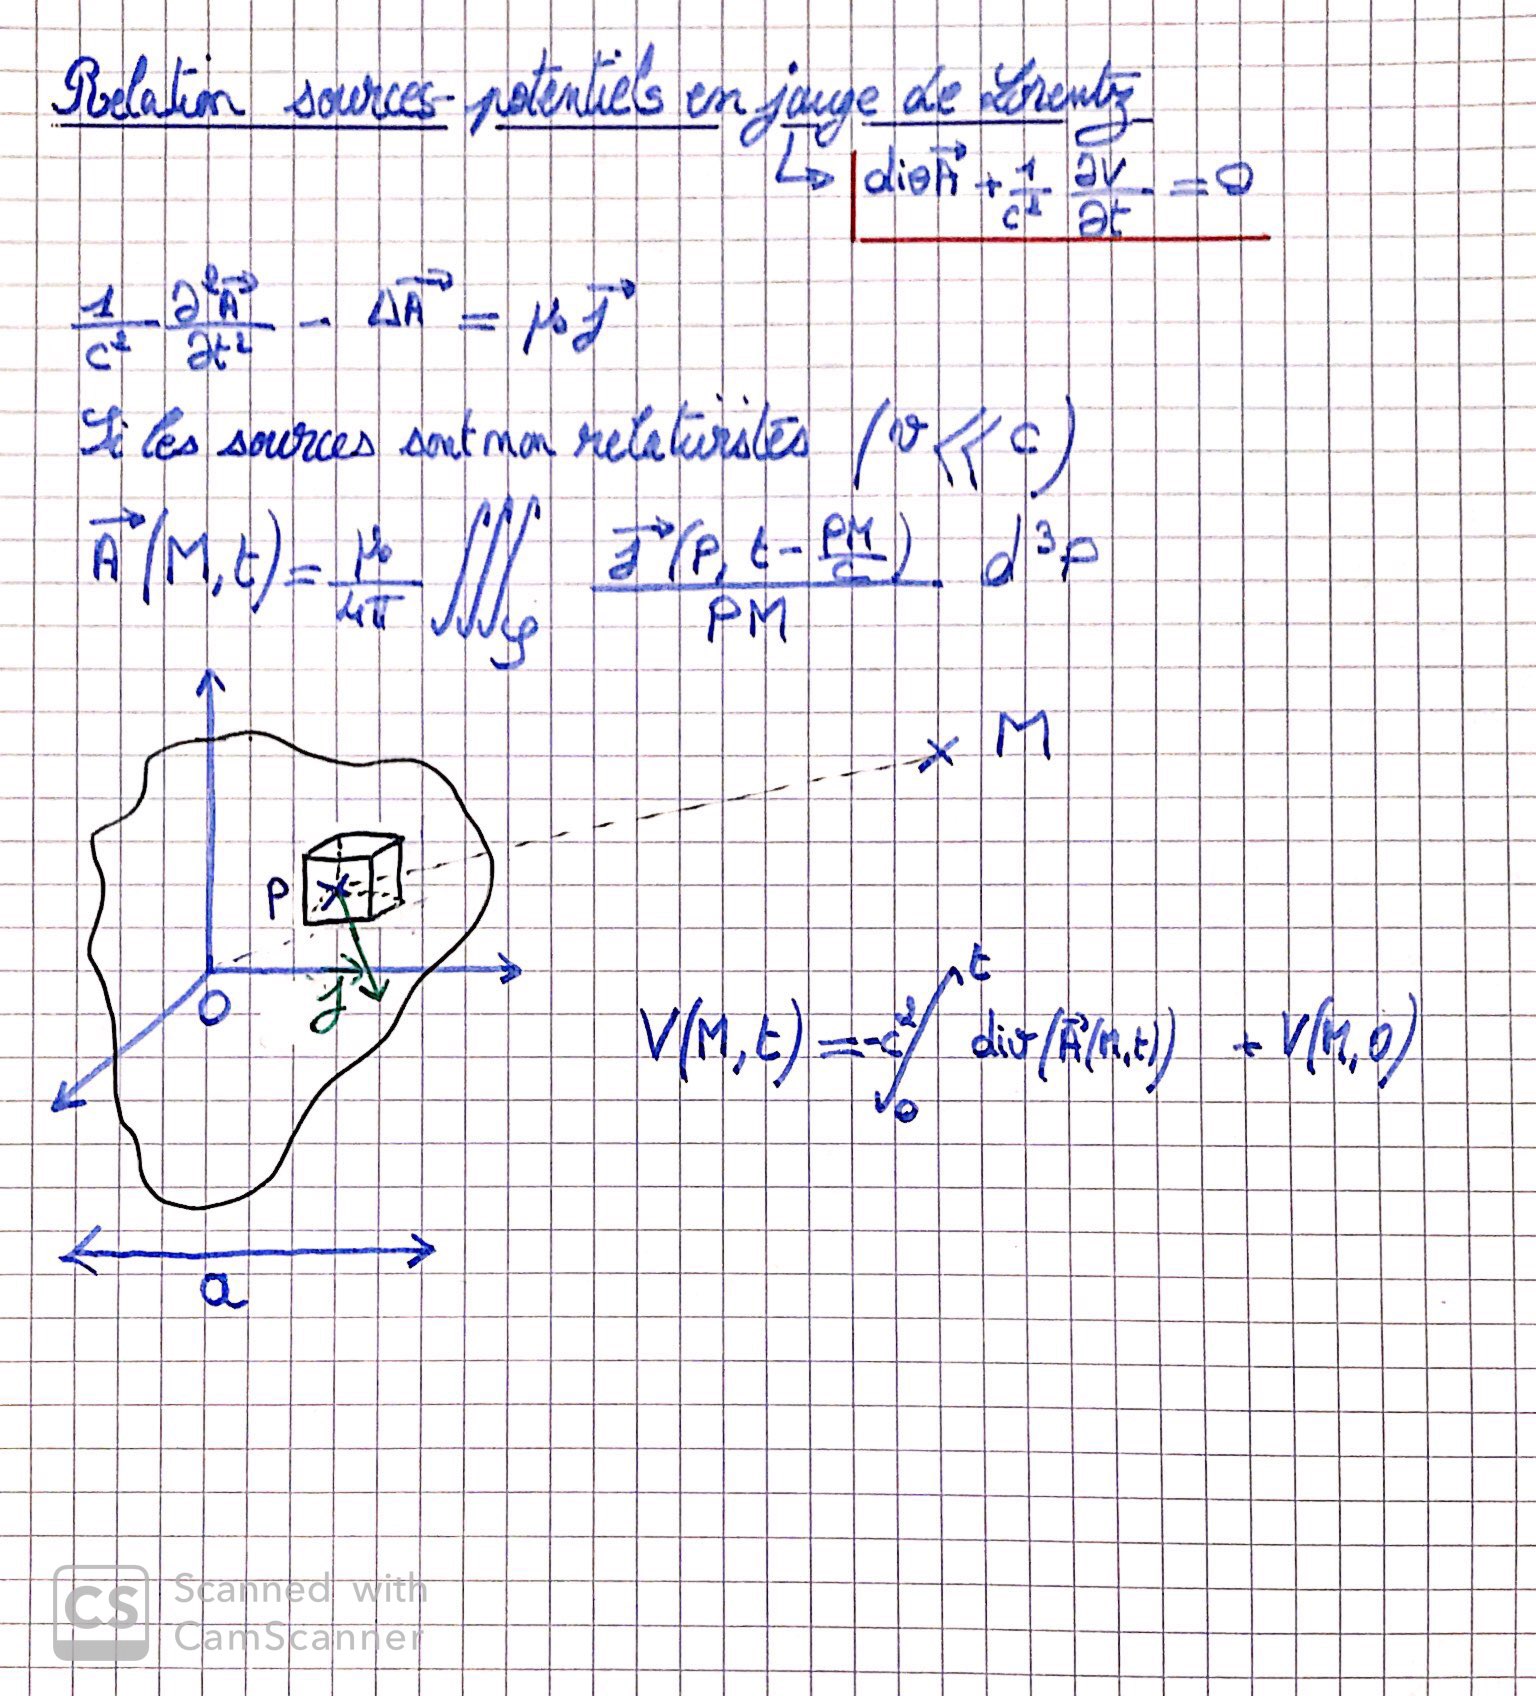 Relation sources-potentiels en jauge de Lorentz
↳ div A⃗ + 1/c² ∂V/∂t = 0
1/c² ∂²A⃗/∂t² - ΔA⃗ = μ₀ j⃗
Si les sources sont non relativistes (v << c)
A⃗(M, t) = μ₀/4π ∭_𝒮 j⃗(P, t - PM/c)/PM d³P
M
P
O
j⃗
V(M, t) = -c² ∫₀ᵗ div(A⃗(M,t)) + V(M, 0)
a
CS Scanned with
CamScanner